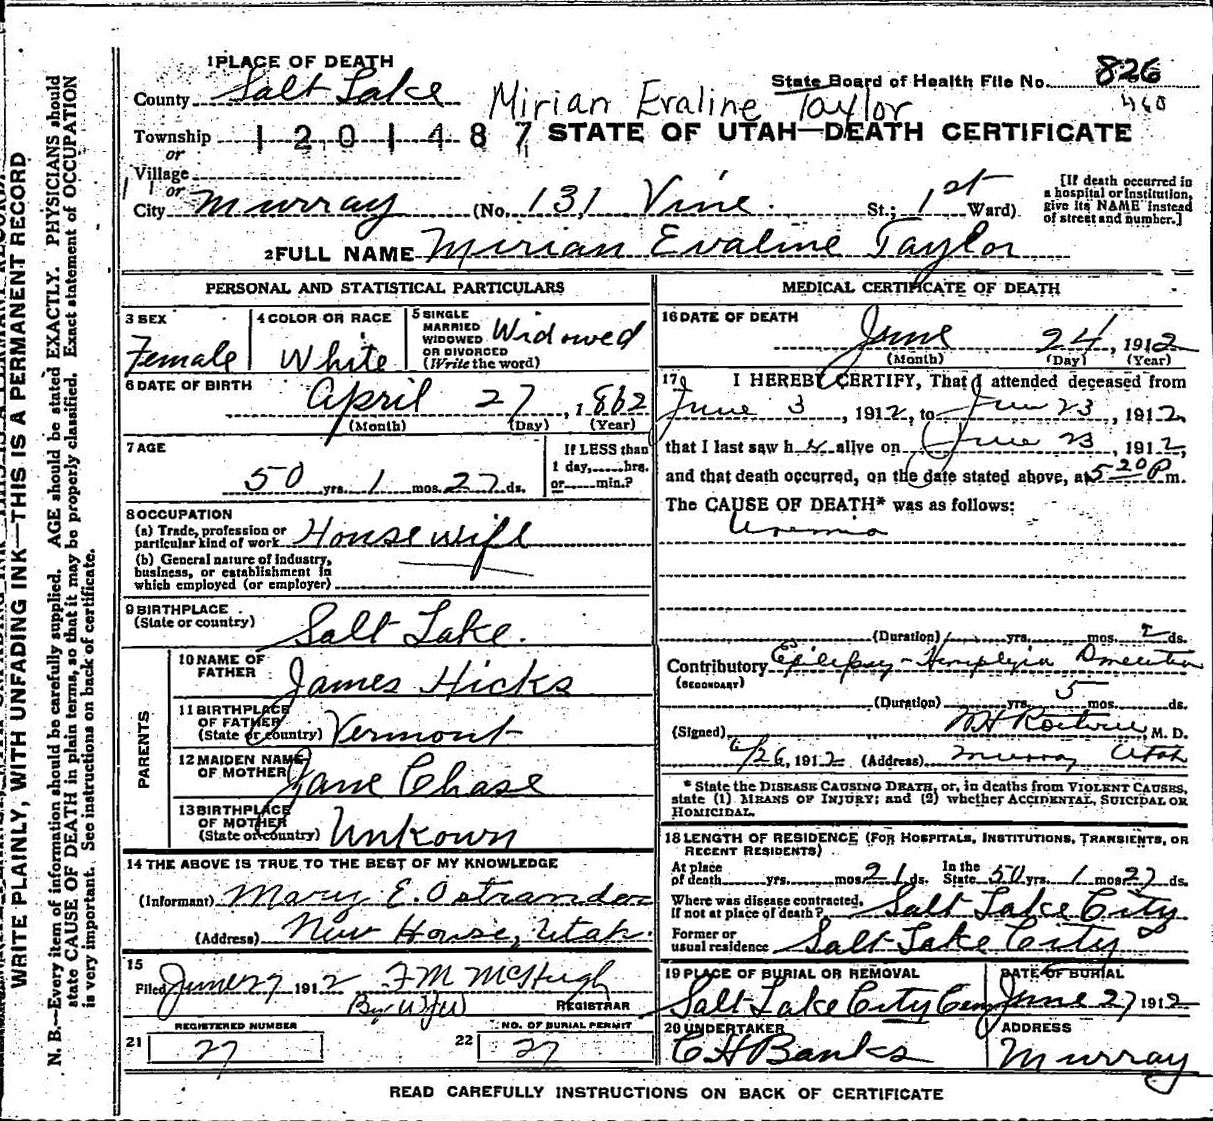 WRITE PLAINLY, WITH UNFADING INK—THIS IS A PERMANENT RECORD
N. B.—Every item of information should be carefully supplied. AGE should be stated EXACTLY. PHYSICIANS should
state CAUSE OF DEATH in plain terms, so that it may be properly classified. Exact statement of OCCUPATION
is very important. See instructions on back of certificate.
1 PLACE OF DEATH
State Board of Health File No. 826
460
County Salt Lake
Mirian Evaline Taylor
Township 1201487
STATE OF UTAH—DEATH CERTIFICATE
or
Village
or
City Murray (No. 131 Vine. St.; 1st Ward)
[If death occurred in
a hospital or institution,
give its NAME instead
of street and number.]
2 FULL NAME Mirian Evaline Taylor
PERSONAL AND STATISTICAL PARTICULARS
3 SEX
Female
4 COLOR OR RACE
White
5 SINGLE
MARRIED
WIDOWED
OR DIVORCED
(Write the word)
Widowed
6 DATE OF BIRTH
April 27, 1862
(Month) (Day) (Year)
7 AGE
50 yrs. 1 mos. 27 ds.
If LESS than
1 day, hrs.
or min.?
8 OCCUPATION
(a) Trade, profession or
particular kind of work Housewife
(b) General nature of industry,
business, or establishment in
which employed (or employer)
9 BIRTHPLACE
(State or country) Salt Lake.
PARENTS
10 NAME OF
FATHER James Hicks
11 BIRTHPLACE
OF FATHER
(State or country) Vermont
12 MAIDEN NAME
OF MOTHER Jane Chase
13 BIRTHPLACE
OF MOTHER
(State or country) Unkown
14 THE ABOVE IS TRUE TO THE BEST OF MY KNOWLEDGE
(Informant) Mary E. Ostrander
(Address) New House, Utah.
15
Filed June 27 1912 F M McHugh
REGISTRAR
REGISTERED NUMBER
21 27
NO. OF BURIAL PERMIT
22 27
MEDICAL CERTIFICATE OF DEATH
16 DATE OF DEATH
June 24, 1912
(Month) (Day) (Year)
17 I HEREBY CERTIFY, That I attended deceased from
June 3, 1912, to June 23, 1912,
that I last saw her alive on June 23, 1912,
and that death occurred, on the date stated above, at 5 20 P m.
The CAUSE OF DEATH* was as follows:
Uremia
(Duration) yrs. mos. 2 ds.
Contributory Epilepsy - Hemiplegia
(SECONDARY)
(Duration) yrs. 5 mos. ds.
(Signed) M. D.
6/26, 1912 (Address) Murray Utah
* State the DISEASE CAUSING DEATH, or, in deaths from VIOLENT CAUSES,
state (1) MEANS OF INJURY; and (2) whether ACCIDENTAL, SUICIDAL OR
HOMICIDAL.
18 LENGTH OF RESIDENCE (FOR HOSPITALS, INSTITUTIONS, TRANSIENTS, OR
RECENT RESIDENTS)
At place
of death yrs. mos. 21 ds.
In the
State 50 yrs. 1 mos. 27 ds.
Where was disease contracted,
if not at place of death? Salt Lake City
Former or
usual residence Salt Lake City
19 PLACE OF BURIAL OR REMOVAL
Salt Lake City Cem
DATE OF BURIAL
June 27 1912
20 UNDERTAKER
C H Banks
ADDRESS
Murray
READ CAREFULLY INSTRUCTIONS ON BACK OF CERTIFICATE